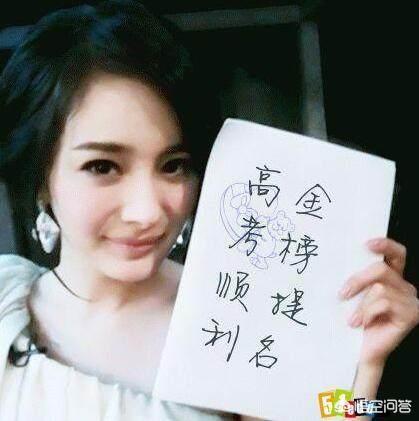 高考顺利
金榜提名
悟空问答